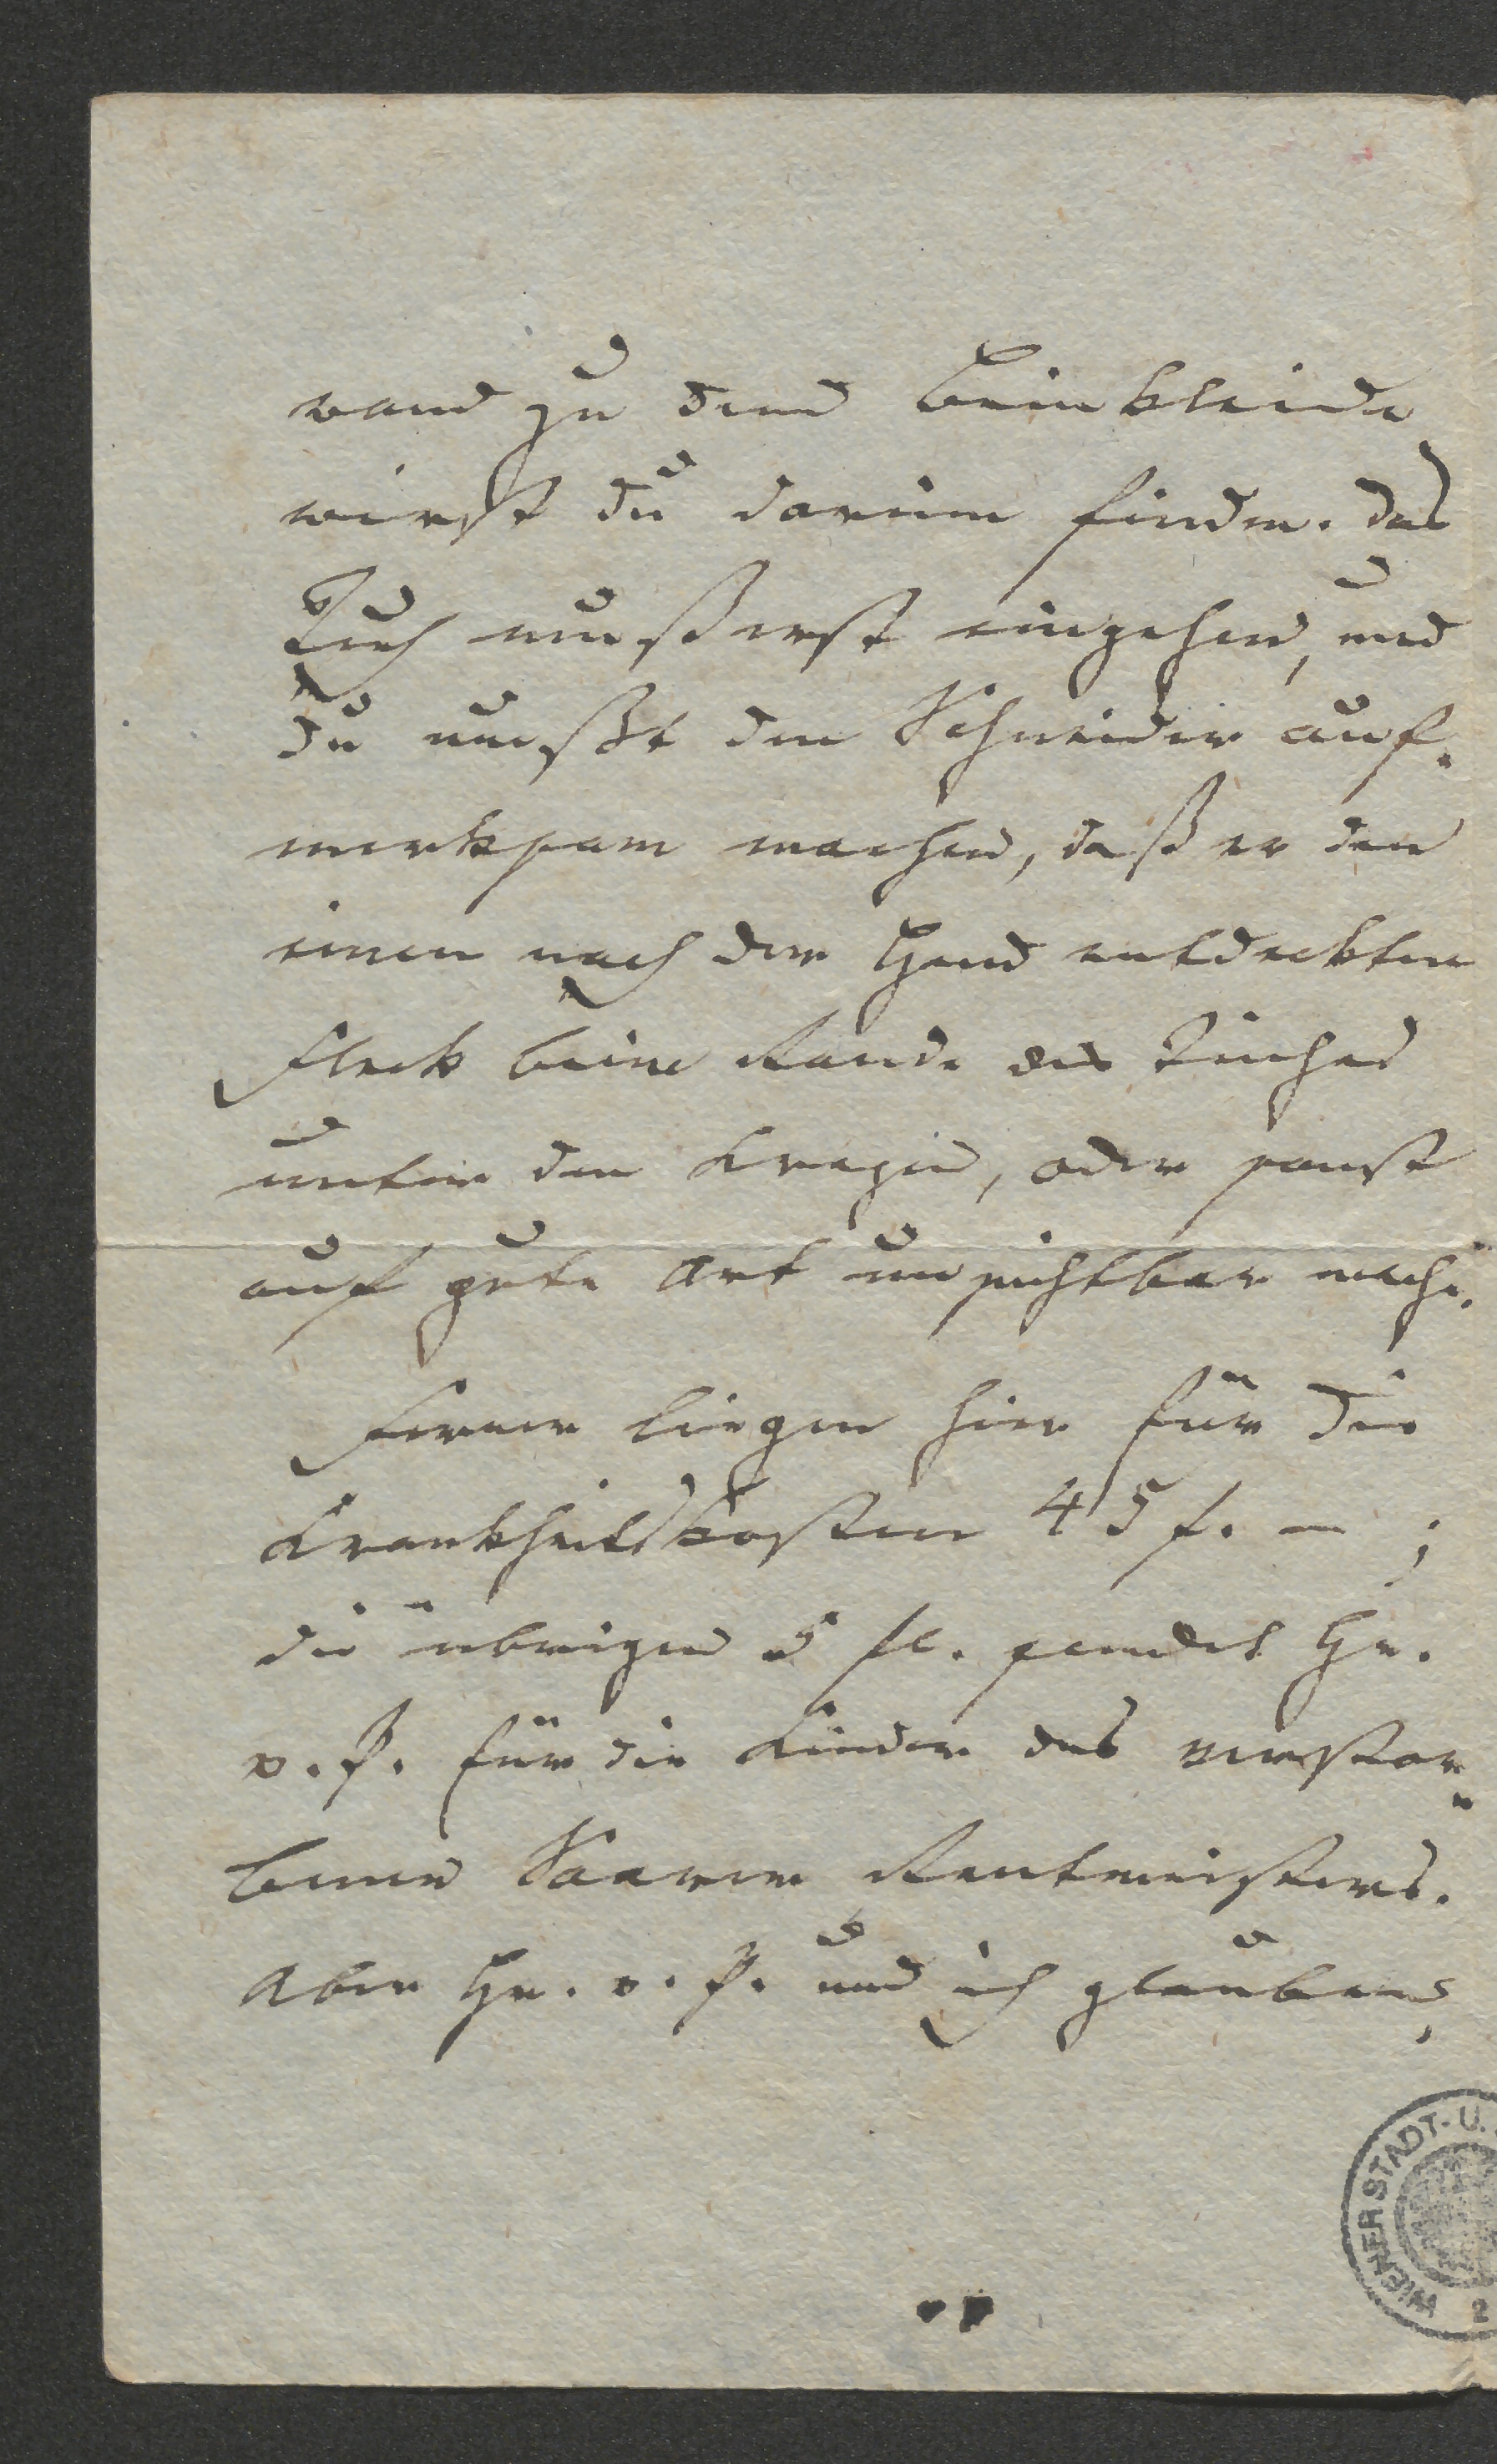 wand zu dem Beinkleide
wirst du darinn finden. das
Tuch muß erst eingehen, und
du mußt den Schneider auf-
merksam machen, daß er den
einen nach der Hand entdeckten
Fleck beim Rande des Tuches
unter den Kragen, oder sonst
auf gute Art unsichtbar mache.
Ferner liegen hier für die
Krankheitskosten 45 f. – ;
die übrigen 5 fl. sendet Hr.
v. P. für die Kinder des verstor-
benen Saarer Rentmeisters.
Aber Hr. v. P. und ich glauben,
WIENER STADT- U.
2